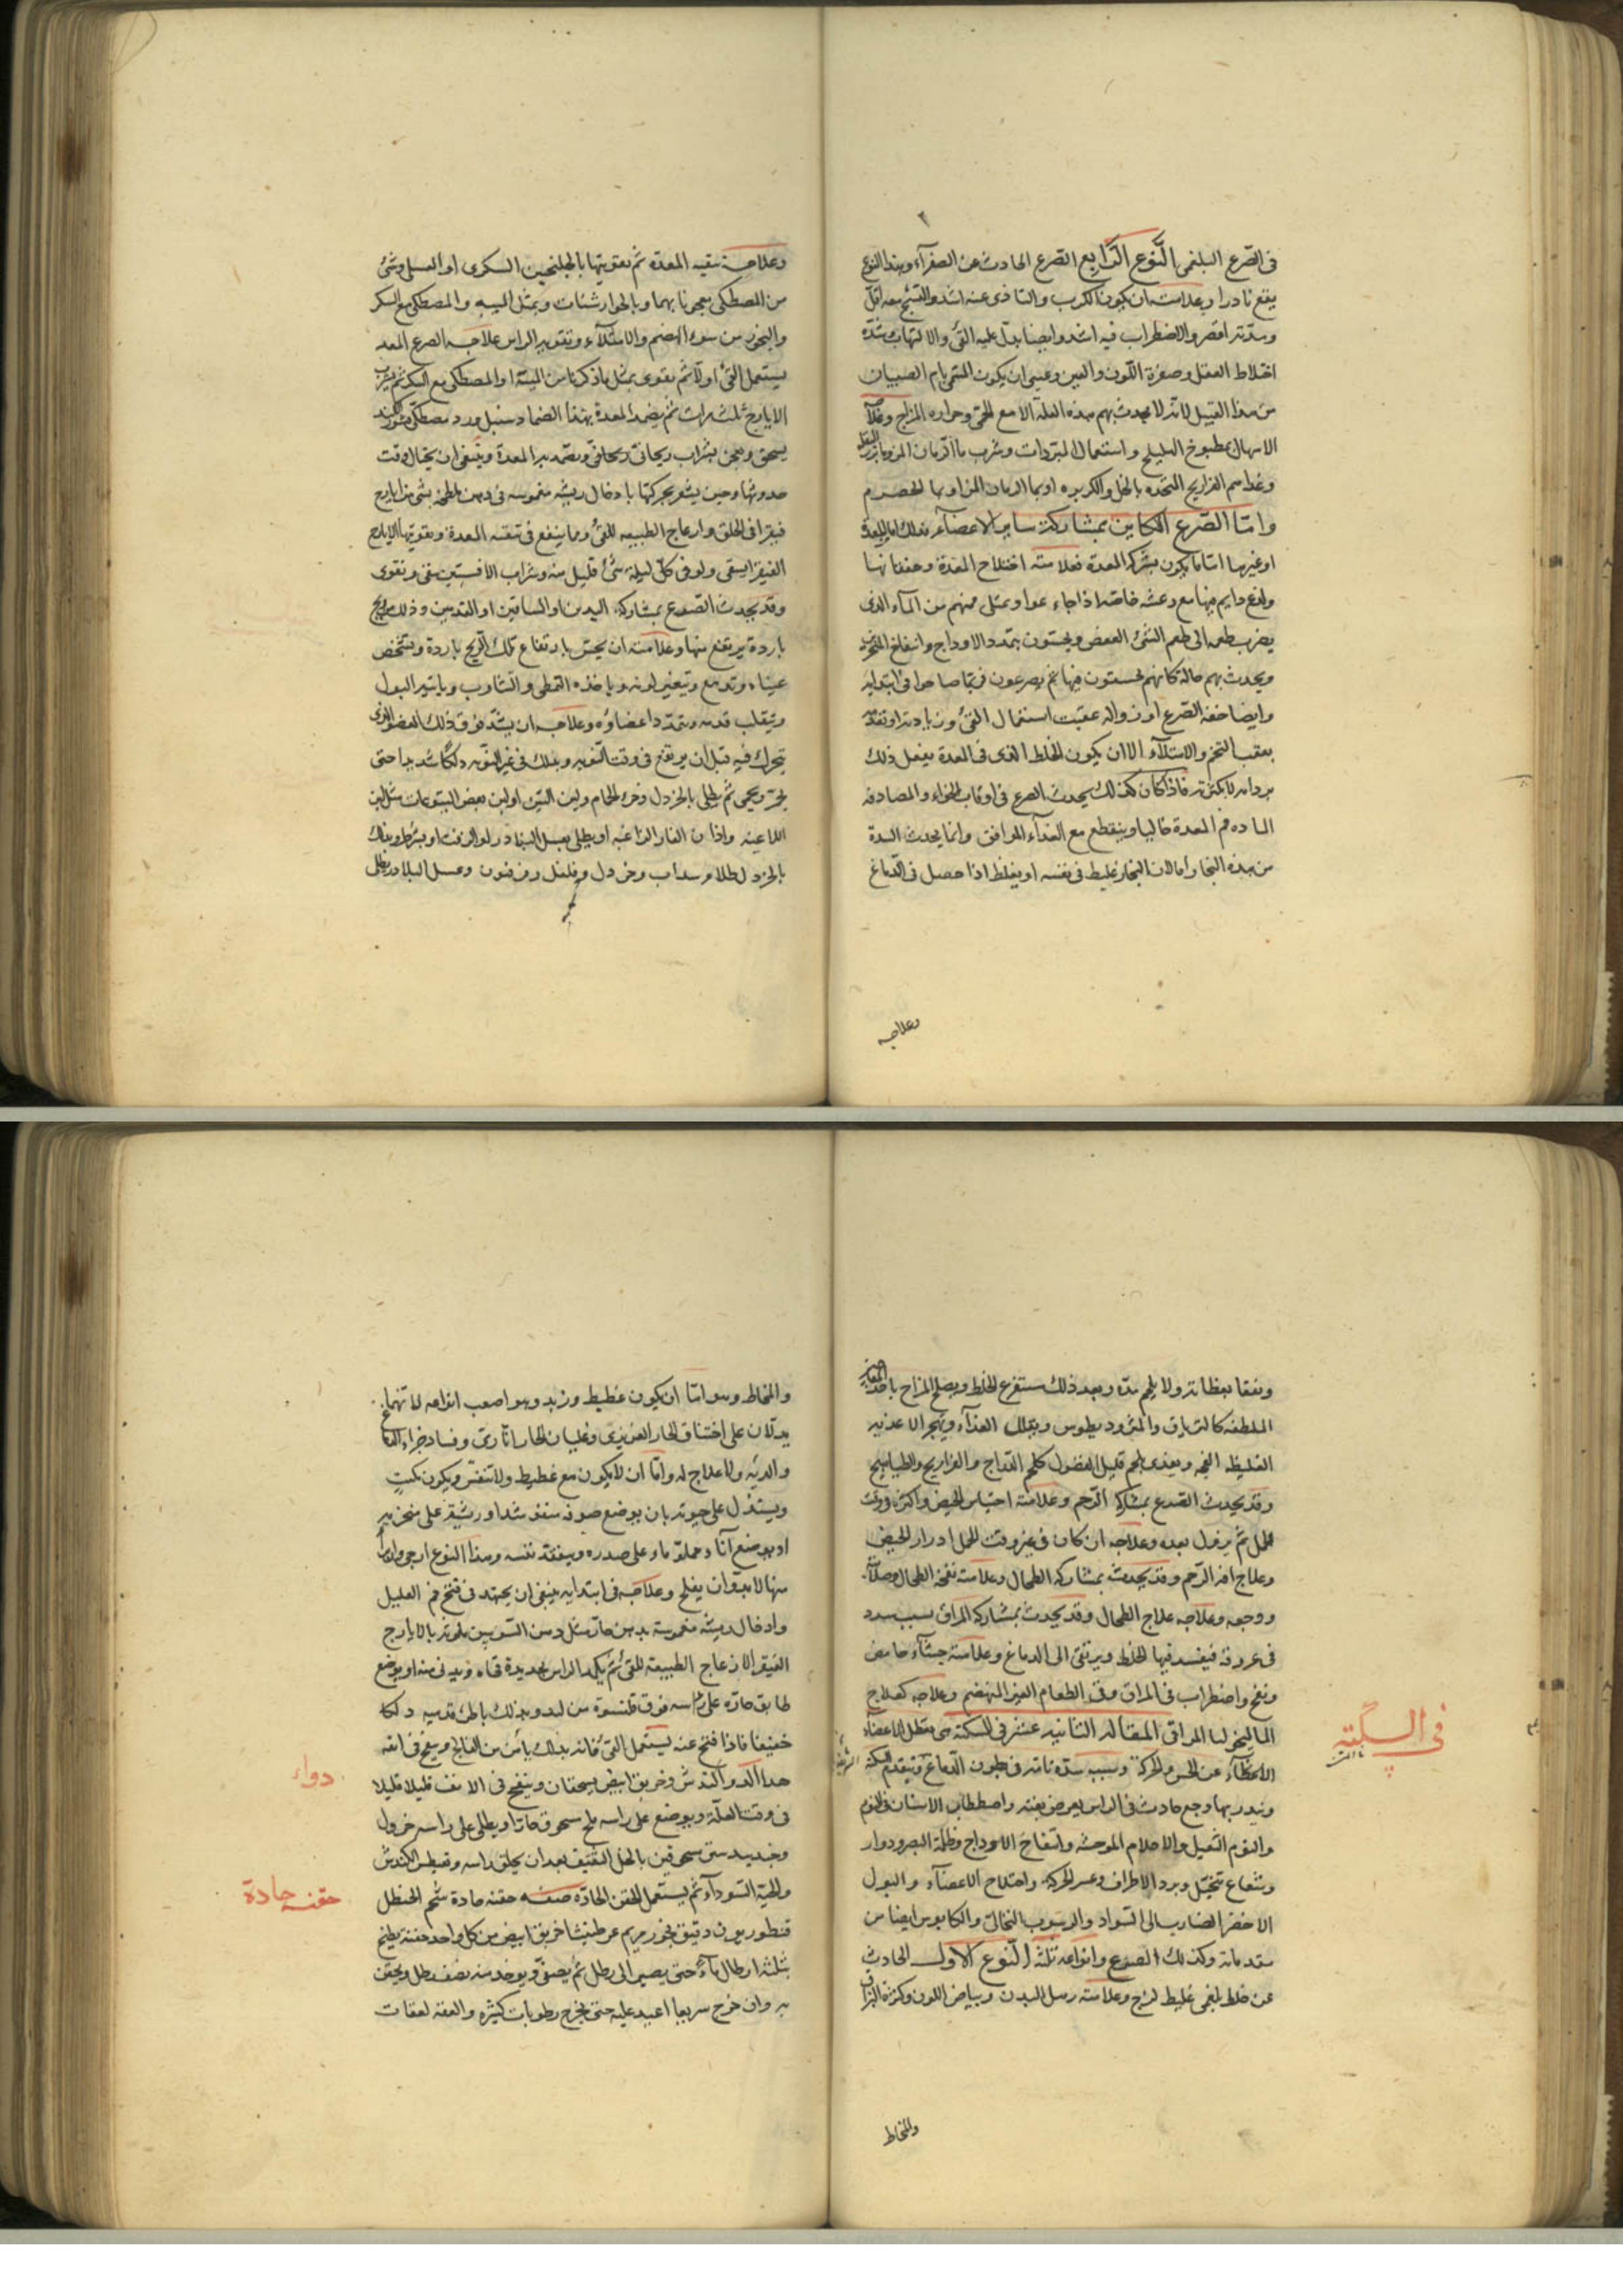 في الصرع البلغمي النوع الرابع الصرع الحادث عن الصفرآء وهذا النوع
يقع نادرا وعلامته ان يكون الكرب والتاذى عنه اشد والتشنج معه اقل
ومدته اقصر والاضطراب فيه اشد وايضا يدل عليه القئ والالتهاب وشدة
اختلاط العقل وصفرة اللون والعين وعسى ان يكون المسمى بام الصبيان
من هذا القبيل لانه لا يحدث بهم هذه العلة الا مع الحمى وحرارة المزاج وعلاجه
الاسهال بمطبوخ الهليلج واستعمال المبردات وشرب ماء الرمان المز
وغذاهم الفراريج المتخذه بالخل والكزبره او بماء الرمان المز او بماء الحصرم
وامّا الصّرع الكاين بمشاركة ساير الاعضآء فذلك اما للمعدة
او غيرها امّا ما يكون بشركه المعدة فعلامته اختلاج المعدة وخفقانها
ولذع دايم فيها مع رعشه خاصّه اذا جاعوا
يضرب طعمه الى طعم الشئ العفص ويحسون بتمدد الاوداج وانتفاخ
ويحدث بهم حالة كانهم يحسّون فيها ثم يصرعون فربّما صاحوا فى ابتدايه
وايضا خفه الصّرع او زواله عقيب استعمال القئ وزيادته
بعقب التخم والامتلآء الا ان يكون الخلط الذى فى المعدة يفعل ذلك
برداته لا بكثرته فاذا كان كذلك يحدث الصرع فى اوقات الخواء والمصادفه
الماده فم المعدة خاليا وينقطع مع الغذآء الموافق وانما يحدث السدة
من هذه البخار امّا لان البخار غليظ فى نفسه او يغلظ اذا حصل فى الدّماغ
وعلاجه
وعلاجه تنقيه المعدة ثم تقويتها بالجلنجبين السكرى او العسل وشئ
من المصطكى معجونا بهما وبالجوارشنات وبمثل الميبه والمصطكى مع السكر
والتحرز من سوء الهضم والامتلآء وتقويه الراس علاجه الصرع المعد
يستعمل القئ اولا ثم يقوى بمثل ما ذكرنا من الميبة او المصطكى مع السكر ثم يشرب
الايارج ثلث مرات ثم يضمد المعدة بهذا الضماد سنبل ورد مصطكى
يسحق ويعجن بشراب ريحانى ويضمد به المعدة وينبغى ان يحتال وقت
حدوثها وحين يشعر بحركتها بادخال ريشه مغموسه فى دهن ملطخه بشئ من ايارج
فيقرا فى الحلق وازعاج الطبيعه للقئ ومما ينفع فى تنقيه المعدة وتقويتها الايارج
الفيقرا يسقى ولو فى كل ليلة شئ قليل منه وشراب الافسنتين ينقى ويقوى
وقد يحدث الصرع بمشاركة اليدين او الساقين او القدمين وذلك بريح
باردة يرتفع منها وعلامته ان يحسّ بارتفاع تلك الريح باردة وتشخص
عيناه وتدمع ويتغير لونه وياخذه التمطى والتثاوب وباتيه البول
ويتقلب قدمه ويتمدّد اعضاؤه وعلاجه ان يشدّ فوق ذلك العضو الذى
يتحرك فيه قبل ان يرتفع فى وقت النوبه ويدلك فى غير النوبه دلكا شديدا حتى
يحمر ويحمى ثم يطلى بالخردل وخرء الحمام ولبن التين او لبن بعض اليتوعات مثل لبن
اللاعيه واذان الفار
بالخردل طلاء سذاب وخردل وفلفل وفرفيون وعسل البلادر يطلى
وينقا بعظاته ولا يلحم مدّة وبعد ذلك يستفرغ الخلط ويصلح المزاج
الملطفه كالترياق والمثروديطوس ويقلل الغذآء ويهجر الاغذيه
الغليظه الفجه ويغذى بلحم قليل الفضول كلحم الدرّاج والفراريج والطياهيج
وقد يحدث الصرع بمشاركة الرّحم وعلامته احتباس الحيض واكثره وقت
الحمل ثم يزول بعده وعلاجه ان كان فى غير وقت الحمل ادرار الحيض
وعلاج افه الرّحم وقد يحدث بمشاركه الطحال وعلامته نفخه الطحال وصلابته
ووجعه وعلاجه علاج الطحال وقد يحدث بمشاركه المراق بسبب سدد
فى عروقه فيفسد فيها الخلط ويرتقى الى الدماغ وعلامته جشآء حامض
ونفخ واضطراب فى المراق وقئ الطعام الغير المنهضم وعلاجه كعلاج
الماليخوليا المراقى المقاله الثانيه عشر فى السكتة هى تعطل الاعضاء
عن الحس والحركه وسببه سدّة تامّه فى بطون الدّماغ ويتقدم السكته
وينذر بها وجع حادث فى الراس يعرض بغته واصطكاك الاسنان فى النوم
والنوم الثقيل والاحلام الموحشه وانتفاخ الاوداج وظلمة البصر ودوار
وشعاع يتخيّل وبرد الاطراف وعسر الحركه واختلاج الاعضآء والبول
الاخضر الضارب الى السواد والرسوب النخالى والكابوس ايضا من
مقدماته وكذلك الصرع وانواعه ثلثة النّوع الاول الحادث
عن خلط بلغمى غليظ لزج وعلامته رهل البدن وبياض اللون وكثرة البزاق
فى السكتة
والمخاط
والمخاط وهو امّا ان يكون غطيط وزبد وهو اصعب انواعه لانّهما
يدلّان على اختناق الحار الغريزى وغليان الحار الناريّ وفساد
والريّه ولا علاج له وامّا ان لا يكون مع غطيط ولا تنفّس ويكون كميّتٍ
ويستدل على حيوته بان يوضع صوفه منفوشة او ريشة على منخريه
او يوضع انآء مملوّ ماء على صدره ويتفقد نفسه وهذا النوع ارجى
منها لا بدّ وان يفلج وعلاجه فى ابتدايه ينبغى ان يجتهد فى فتح فم العليل
وادخال ريشه مغموسة بدهن حار مثل دهن السّوسن ملوثه بالايارج
الفيقرا لازعاج الطبيعة للقئ ثم يكمد الراس بحديدة
طابق حارّه على راسه فوق قلنسوة من لبد ويدلك باطن قدميه دلكا
خفيفا فاذا فتح عنه يستعمل القئ فانه بذلك يأمن من الفالج وينفخ فى انفه
هذا الدواء كندش وخربق ابيض يسحقان وينفخ فى الانف قليلا قليلا
فى وقت العلّة ويوضع على راسه ملح مسحوق حارّا ويطلى على راسه خردل
وجندبيدستر مسحوقين بالخل الثقيف بعد ان يحلق راسه ويعطس بالكندش
والحبّة السّودآء ثم يستعمل الحقن الحادّه صفه حقنه حادة شحم الحنظل
قنطوريون دقيق بخور مريم عرطنيثا خربق ابيض من كل واحد حفنة يطبخ
بثلثة ارطال مآء حتى يصير الى رطل ثم يصفّى ويوخذ منه نصف رطل ويحقن
به وان خرج سريعا اعيد عليه حتى يخرج رطوبات كثيره والعقه لعقات
دواء
حقنه حادة